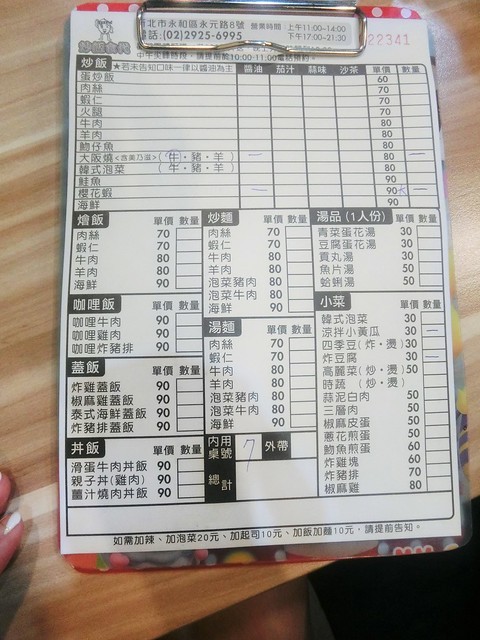 新北市永和區永元路8號 營業時間：上午11:00~14:00
電話:(02)2925-6995 下午17:00~21:30
22341
炒飯 ★若未告知口味一律以醬油為主 醬油 茄汁 蒜味 沙茶 單價 數量
蛋炒飯 60
肉絲 70
蝦仁 70
火腿 70
牛肉 80
羊肉 80
魩仔魚 80
大阪燒<含美乃滋>(牛・豬・羊) 一 80 一
韓式泡菜 (牛・豬・羊) 80
鮭魚 90
櫻花蝦 一 90 一
海鮮 90
燴飯 單價 數量
肉絲 70
蝦仁 70
牛肉 80
羊肉 80
海鮮 90
咖哩飯 單價 數量
咖哩牛肉 90
咖哩雞肉 90
咖哩炸豬排 90
蓋飯 單價 數量
炸雞蓋飯 90
椒麻雞蓋飯 90
泰式海鮮蓋飯 90
炸豬排蓋飯 90
丼飯 單價 數量
滑蛋牛肉丼飯 90
親子丼(雞肉) 90
薑汁燒肉丼飯 90
炒麵 單價 數量
肉絲 70
蝦仁 70
牛肉 80
羊肉 80
泡菜豬肉 80
泡菜牛肉 80
海鮮 90
湯麵 單價 數量
肉絲 70
蝦仁 70
牛肉 80
羊肉 80
泡菜豬肉 80
泡菜牛肉 80
海鮮 90
內用桌號 7 外帶
總計
湯品 (1人份) 單價 數量
青菜蛋花湯 30
豆腐蛋花湯 30
貢丸湯 30
魚片湯 50
蛤蜊湯 50
小菜 單價 數量
韓式泡菜 30
涼拌小黃瓜 30 一
四季豆(炸・燙) 30
炸豆腐 30 一
高麗菜(炒・燙) 50
時蔬 (炒・燙)
蒜泥白肉 50
三層肉 50
椒麻皮蛋 50
蔥花煎蛋 50
魩魚煎蛋 60
炸雞塊 60
炸豬排 70
椒麻雞 80
如需加辣、加泡菜20元、加起司10元、加飯加麵10元，請提前告知。